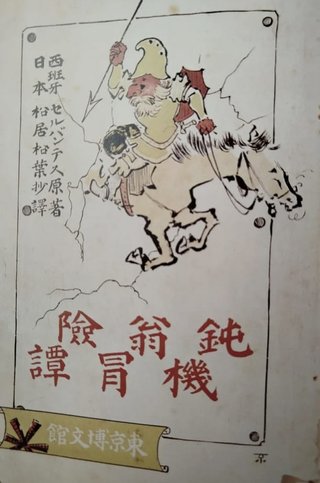 西班牙 セルバンデス原著
日本 松居松葉抄譯
鈍機翁冒險譚
東京博文館